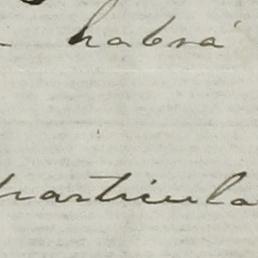 habrá
particula